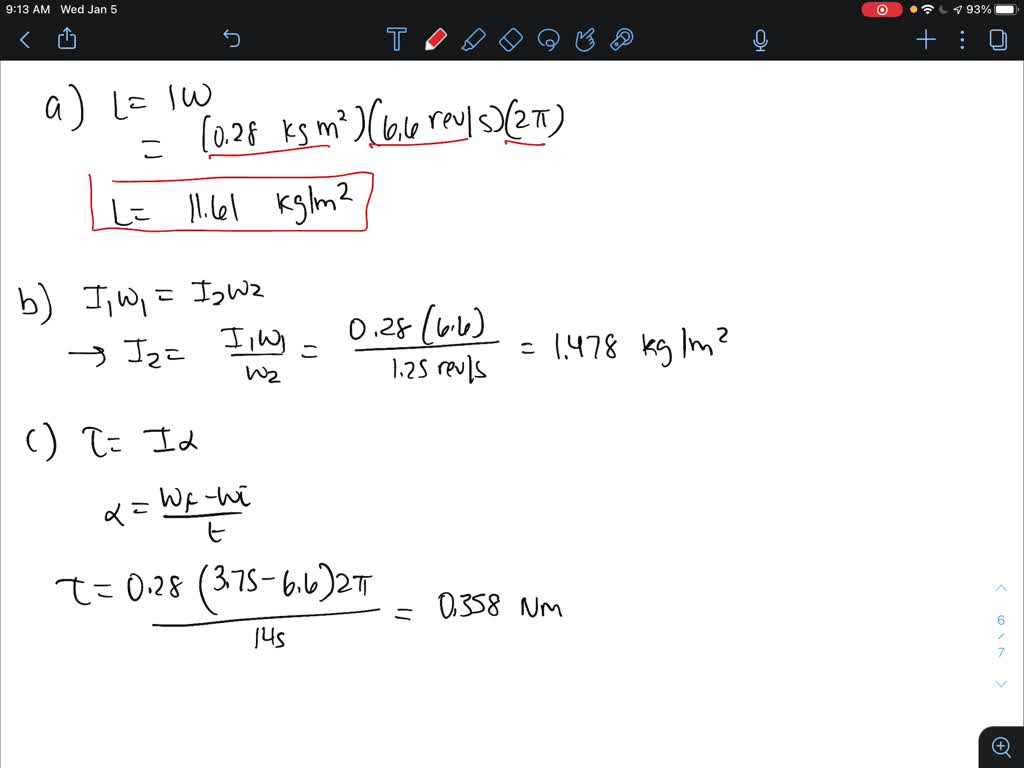 9:13 AM Wed Jan 5 93%
T
a) L = IW
= (0.28 kgm²)(6.6 rev/s)(2π)
L = 11.61 kg/m²
b) I₁W₁ = I₂W₂
→ I₂ = I₁W₁/W₂ = 0.28(6.6)/1.25 rev/s = 1.478 kg/m²
c) τ = Iα
α = (Wf - Wi)/t
τ = 0.28(3.75 - 6.6)2π/14s = 0.358 Nm
6/7